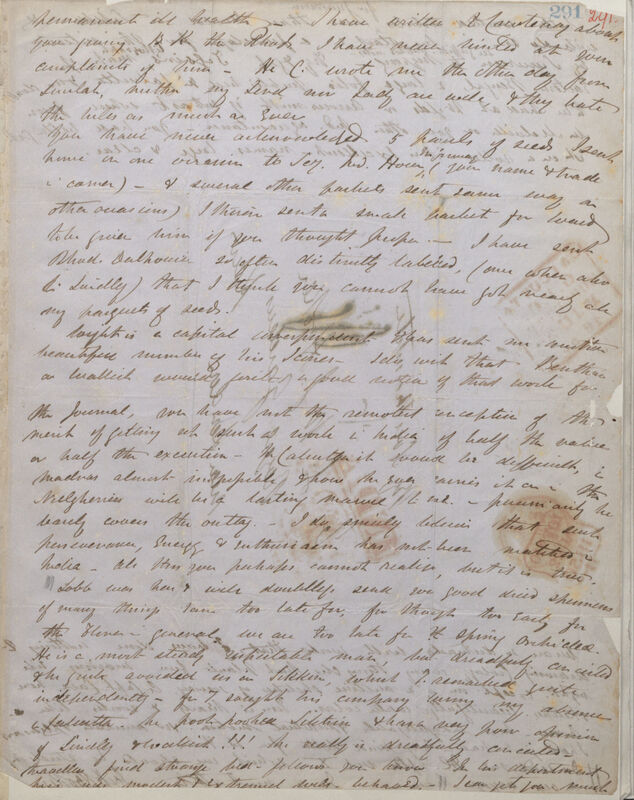 291 291.
permanent ill health — I have written to Courtenay about
your giving Ld H the Rhods I have never hinted at your
complaints of him — He C. wrote me the other day from
Simlah, neither my Lord nor Lady are well, & they hate
the hills as much as ever.
You have never acknowledged 5 parcels of seeds I sent
home in one overland to Sey. Ind. House, (your name & trade
in corner) — & several other packets sent same way on
other occasions) I therein sent a small packet for Ward
to be given him if you thought proper. — I have sent
Rhod. Dalhousiae so often distinctly labeled, (once when also
to Lindley) that I think you cannot have got nearly all
my parcels of seeds.
Wight is a capital correspondent & has sent me another
beautiful number of his Icones — I do wish that Bentham
or Wallich would write a good notice of that work for
the Journal, you have not the remotest conception of the
merit of getting out such a work in India of half the value
or half the execution — In Calcutta it would be difficult, in
Madras almost impossible, & how he ever carries it on in the
Neilgherries will be a lasting marvel to me. — pecuniarily he
barely covers the outlay. — I do, sincerely believe that such
perseverance, Energy & Enthusiasm has not been matched in
India — all this you perhaps cannot realise, but it is true.
Lobb was here & will doubtless send you good dried specimens
of many things I am too late for, for though too early for
the flower — general, we are too late for the spring Orchideae.
He is a most steady, respectable man, but dreadfully conceited
& he quite avoided us in Sikkim, which T. remarked quite
independently — for T sought his company during my absence
in Calcutta he pooh poohed Sikkim & has a very poor opinion
of Lindley & Wallich!!! he really is dreadfully conceited —
travellers find strange bed-fellows you know — In his department
he is very modest & extremely well-behaved — I can get you much